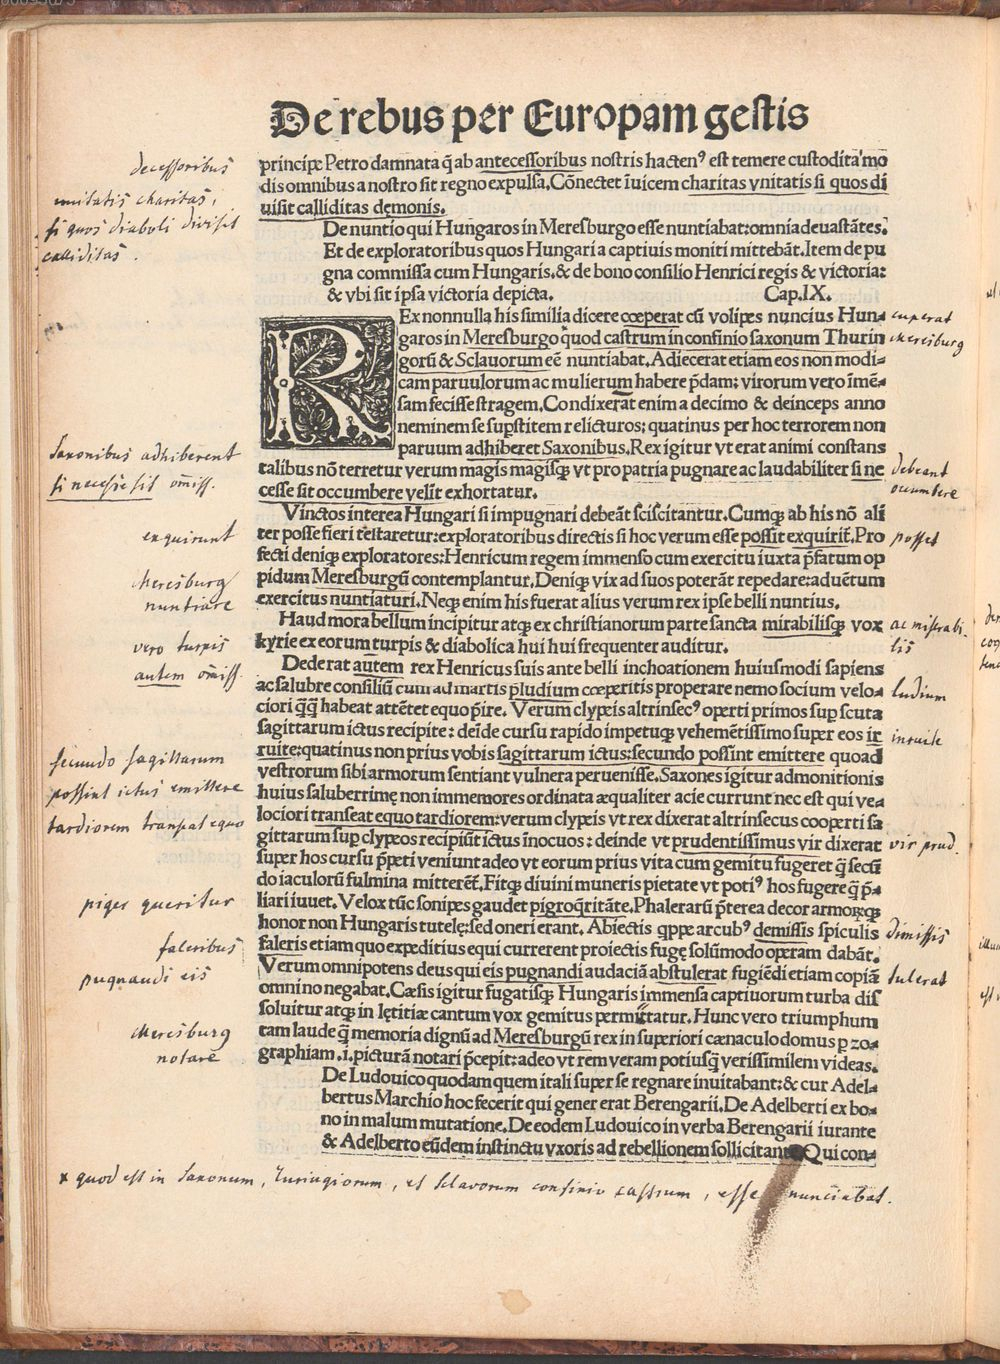 De rebus per Europam gestis
principe Petro damnata q̃ ab antecessoribus nostris hacten⁹ est temere custodita'mo
dis omnibus a nostro sit regno expulsa. Cõnectet ĩuicem charitas vnitatis si quos di
uisit calliditas demonis.
De nuntio qui Hungaros in Meresburgo esse nuntiabat: omnia deuastãtes.
Et de exploratoribus quos Hungari a captiuis moniti mittebãt. Item de pu
gna commissa cum Hungaris. & de bono consilio Henrici regis & victoria:
& vbi sit ipsa victoria depicta. Cap. IX.
REx nonnulla his similia dicere cœperat cũ volipes nuncius Hun-
garos in Meresburgo quod castrum in confinio saxonum Thurin
gorũ & Sclauorum eẽ nuntiabat. Adiecerat etiam eos non modi-
cam paruulorum ac mulierum habere p̃dam: virorum vero ĩmẽ-
sam fecisse stragem. Condixerat enim a decimo & deinceps anno
neminem se sup̱stitem relicturos; quatinus per hoc terrorem non
paruum adhiberet Saxonibus. Rex igitur vt erat animi constans
talibus nõ terretur verum magis magisq; vt pro patria pugnare ac laudabiliter si ne
cesse sit occumbere velit exhortatur.
Vinctos interea Hungari si impugnari debeãt sciscitantur. Cumq; ab his nõ ali
ter posse fieri testaretur: exploratoribus directis si hoc verum esse possit exquirit. Pro
fecti deniq; exploratores: Henricum regem immenso cum exercitu iuxta p̃fatum op
pidum Meresburgũ contemplantur. Deniq; vix ad suos poterãt repedare: aduẽtum
exercitus nuntiaturi. Neq; enim his fuerat alius verum rex ipse belli nuntius.
Haud mora bellum incipitur atq; ex christianorum parte sancta mirabilisq; vox
kyrie ex eorum turpis & diabolica hui hui frequenter auditur.
Dederat autem rex Henricus suis ante belli inchoationem huiusmodi sapiens
ac salubre consiliũ cum ad martis p̃ludium cœperitis properare nemo socium velo-
ciori q̃q̃ habeat attẽtet equo p̃ire. Verum clypeis altrinsec⁹ operti primos sup̱ scuta
sagittarum ictus recipite: deĩde cursu rapido impetuq; vehemẽtissimo super eos ir
ruite: quatinus non prius vobis sagittarum ictus: secundo possint emittere quod
vestrorum sibi armorum sentiant vulnera peruenisse. Saxones igitur admonitionis
huius saluberrimę non immemores ordinata æqualiter acie currunt nec est qui ve-
lociori transeat equo tardiorem: verum clypeis vt rex dixerat altrinsecus cooperti sa
gittarum sup̱ clypeos recipiũt ictus inocuos: deinde vt prudentissimus vir dixerat
super hos cursu p̃peti veniunt adeo vt eorum prius vita cum gemitu fugeret q̃ secũ
do iaculorũ fulmina mitterẽt. Fitq; diuini muneris pietate vt poti⁹ hos fugere q̃ p̃-
liari iuuet. Velox tũc sonipes gaudet pigroq̃ritãte. Phalerarũ p̃terea decor armoꝝq;
honor non Hungaris tutelę: sed oneri erant. Abiectis q̱ppe arcub⁹ demissis spiculis
faleris etiam quo expeditius equi currerent proiectis fugę solũmodo operam dabãt.
Verum omnipotens deus qui eis pugnandi audaciã abstulerat fugiẽdi etiam copiã
omnino negabat. Cæsis igitur fugatisq; Hungaris immensa captiuorum turba dis
soluitur atq; in lętitiæ cantum vox gemitus permittatur. Hunc vero triumphum
tam laude q̃ memoria dignũ ad Meresburgũ rex in superiori cænaculo domus p̱ zo-
graphiam .i. picturã notari p̃cepit: adeo vt rem veram potiusq̃ verissimilem videas.
De Ludouico quodam quem itali super se regnare inuitabant: & cur Adel-
bertus Marchio hoc fecerit qui gener erat Berengarii. De Adelberti ex bo-
no in malum mutatione. De eodem Ludouico in verba Berengarii iurante
& Adelberto eũdem instinctu vxoris ad rebellionem sollicitante Qui con-
decessoribus
unitatis charitas,
si quos diaboli divisit
calliditas.
Saxonibus adhiberent
si necesse sit omiss.
exquirunt
Meresburg
nuntiare
vero turpis
autem omiss.
secundo sagittarum
possint ictus emittere
tardiorem transeat equo
piger queritur
faleribus
pugnandi eis
Meresburg
notare
ceperat
Meresburg
debeant
occumbere
posset
ac miserabi-
lis
ludium
intuite
vir prud.
dimissis
tulerat
x quod est in Saxonum, Turingiorum, et Sclavorum confinio castrum, esse nunciabat.